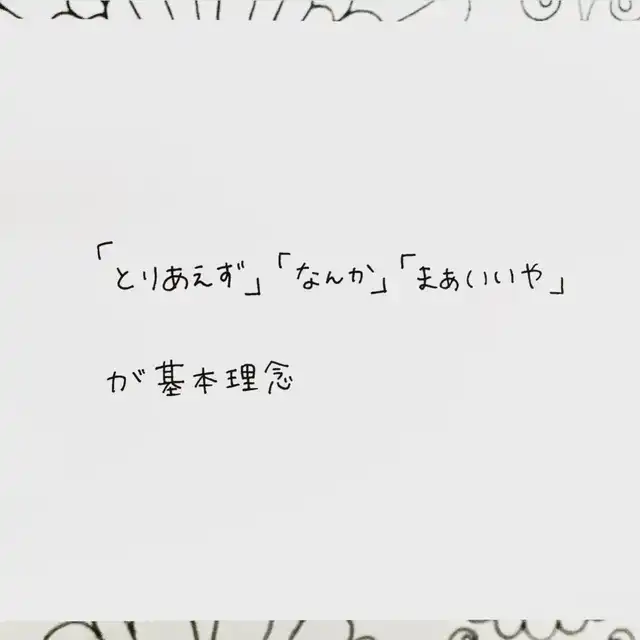 「とりあえず」「なんか」「まあいいや」
が基本理念